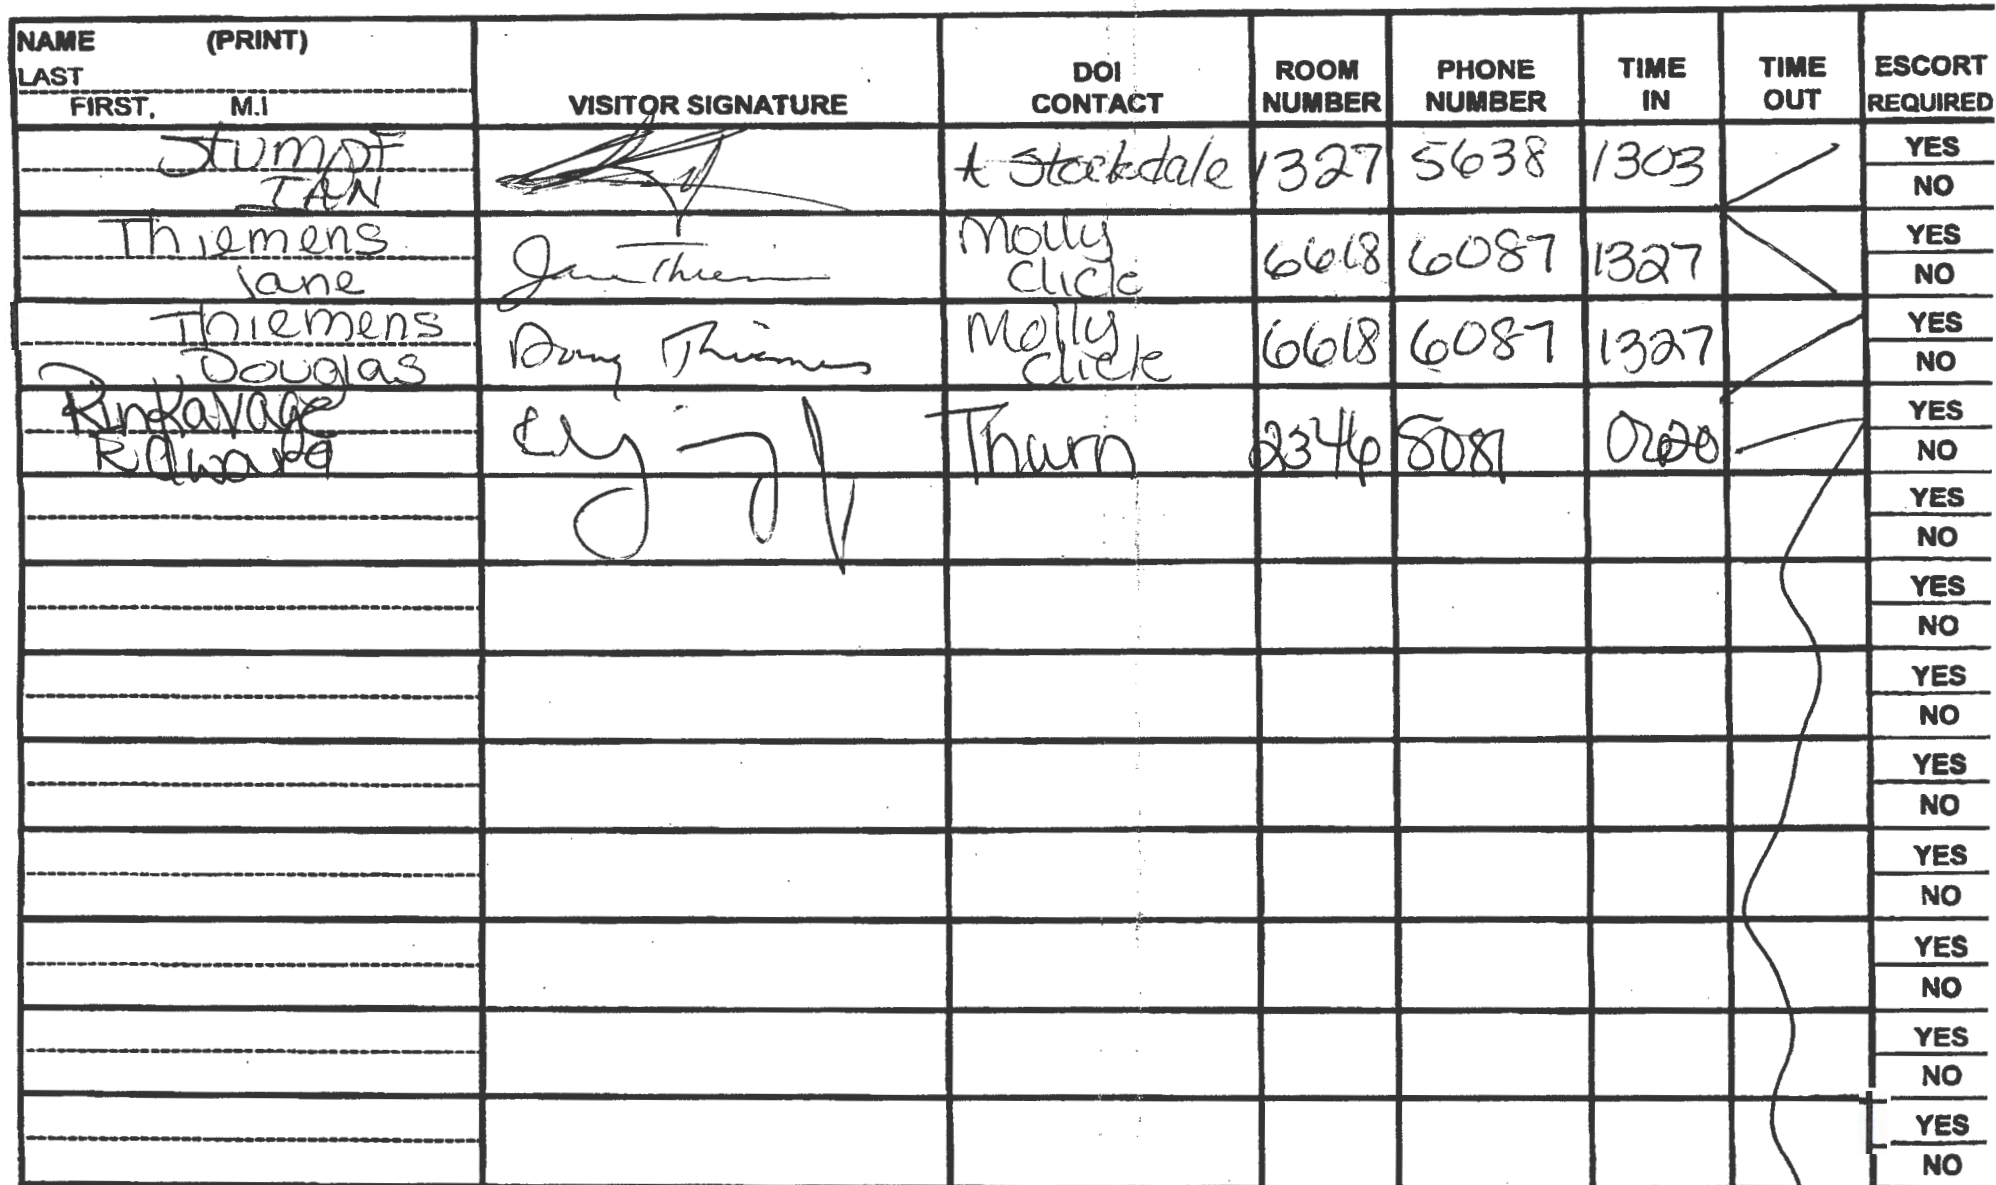 NAME (PRINT)
LAST
FIRST, M.I
VISITOR SIGNATURE
DOI CONTACT
ROOM NUMBER
PHONE NUMBER
TIME IN
TIME OUT
ESCORT REQUIRED
Stumpf
IAN
A Stockdale 1327 5638 1303
YES
NO
Thiemens
Jane
Jane Thiem
Molly
Click
6618 6087 1327
YES
NO
Thiemens
Douglas
Doug Thiemens
Molly
Click
6618 6087 1327
YES
NO
Rinkavage
Edward
Thurn 2346 5081
YES
NO
YES
NO
YES
NO
YES
NO
YES
NO
YES
NO
YES
NO
YES
NO
YES
NO